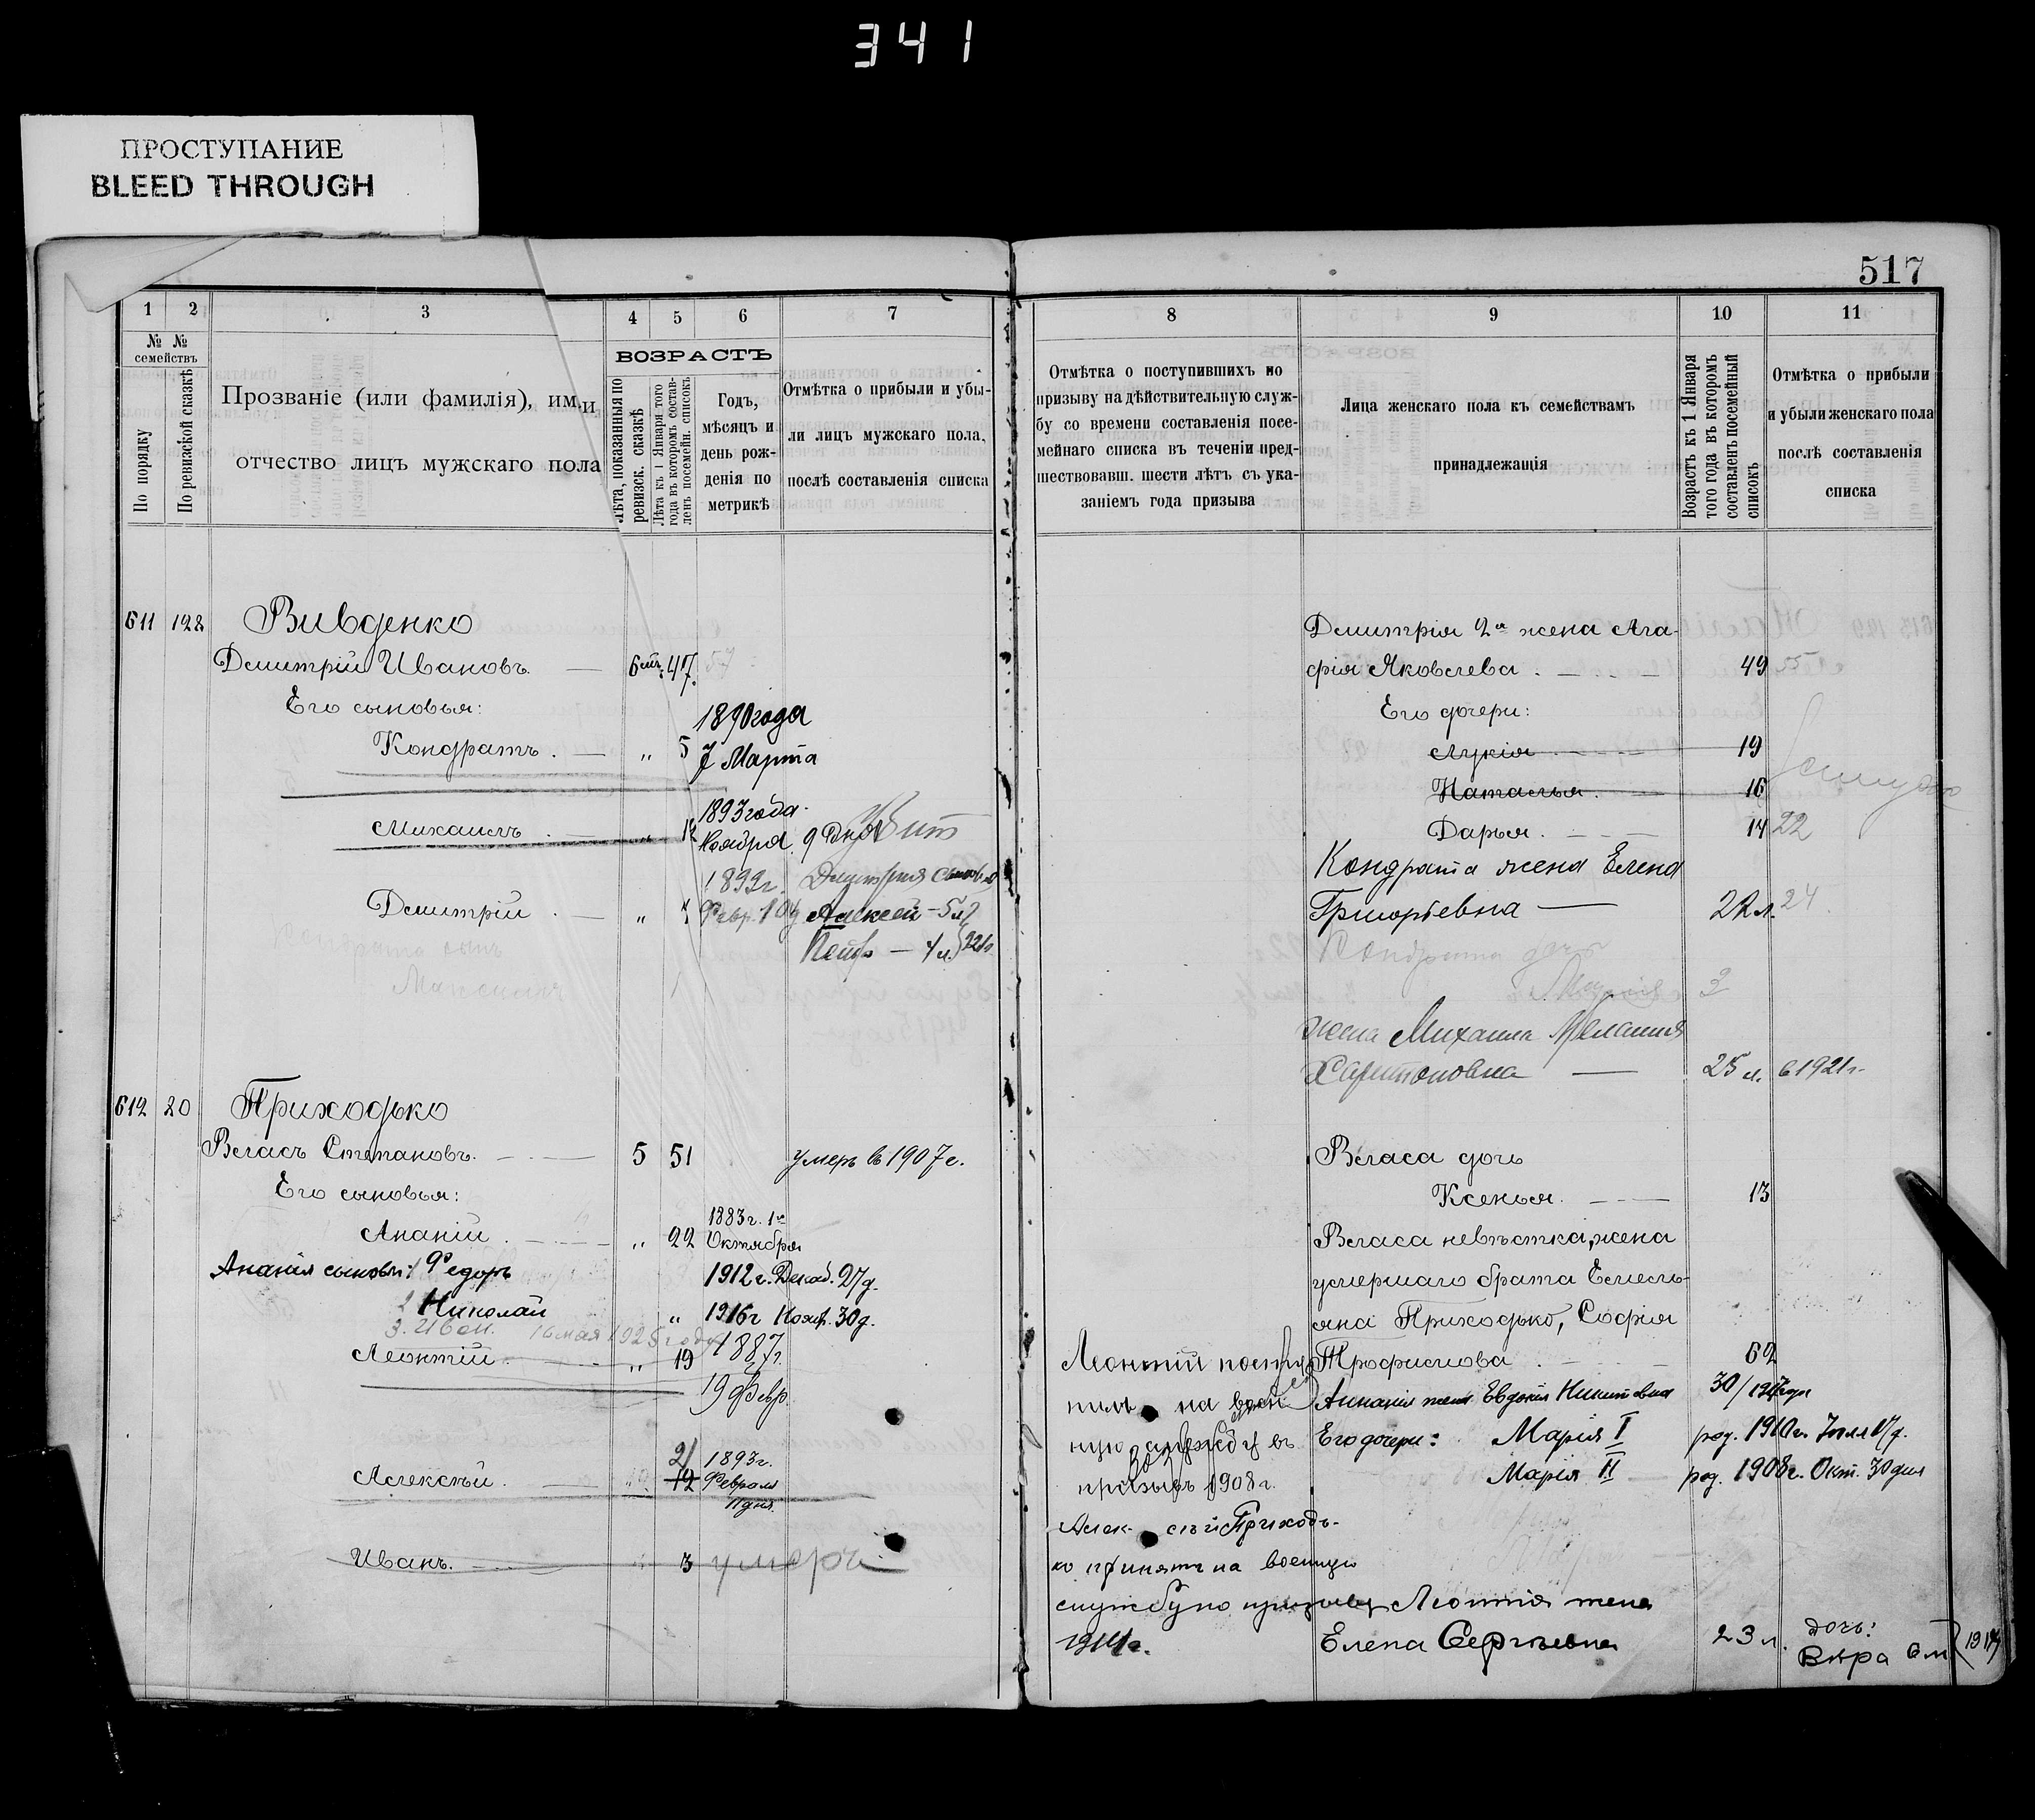 341
ПРОСТУПАНИЕ
BLEED THROUGH
517
1 2 3 4 5 6 7
№ № семействъ
По порядку
По ревизской сказкѣ
Прозваніе (или фамилія), имя и
отчество лицъ мужскаго пола
ВОЗРАСТЪ
Лѣта, показанныя по
ревизск. сказкѣ
Лѣта къ 1 Января того
года въ которомъ состав-
ленъ посемейн. списокъ
Годъ,
мѣсяцъ и
день рож-
денія по
метрикѣ
Отмѣтка о прибыли и убы-
ли лицъ мужскаго пола,
послѣ составленія списка
8 9 10 11
Отмѣтка о поступившихъ по
призыву на дѣйствительную служ-
бу со времени составленія посе-
мейнаго списка въ теченіи пред-
шествовавш. шести лѣтъ съ ука-
заніемъ года призыва
Лица женскаго пола къ семействамъ
принадлежащія
Возрастъ къ 1 Января
того года въ которомъ
составленъ посемейный
списокъ
Отмѣтка о прибыли
и убыли женскаго пола
послѣ составленія
списка
611 122 Вивденко
Димитрій Ивановъ. 47. 57
Его сыновья:
1890 года
Кондратъ. " 5 7 Марта
1893 года
Михаилъ. " 12 Ноября 9 дня
1899г.
Димитрій. " Февр. 10 Алексей - 5 л
Петр — 4 л. 22 г
Кондрата сынъ
Максимъ
Димитрія 2я жена Ага-
фія Яковлева. 49 55
Его дочери:
Лукія 19
Наталья. 16
Дарья. 14 22
Кондрата жена Елена
Григорьевна — 22 л. 24
Кондрата дочь
Марія 3
жена Михаила Меланія
Харитоновна — 25 л. в 1921 г.
612 20 Приходько
Власъ Степановъ. 5 51 умеръ в 1907 г.
Его сыновья:
1883 г. 1го
Ананій. " 22 Октября
Ананія сыновья: 1 Федоръ 1912 г. Декаб. 27 д.
2 Николай " 1916 г Нояб. 30 д.
3. Иван. 16 мая 1925 года
Леонтій. " 19 1887 г.
19 Февр.
21 1893 г.
Алексѣй. 12 Февраля
11 дня.
Иванъ. 3 умеръ
Леонтій
призывъ 1908 г.
Алек-сѣй Приходь-
ко принятъ на военную
службу по призыву
1914 г.
Власа дочь
Ксенья. 13
Власа невѣстка, жена
умершаго брата Емель-
яна Приходько, Софія
Трофимова. 62
Ананія жена Евдокія Никитовна 30/1917 года
Его дочери: Марія I род. 1910 г. Іюля 17 д.
Марія II род. 1908 г. Окт. 30 дня
Леонтія жена
Елена Сергѣевна 23 л. дочь:
Вѣра 6 м